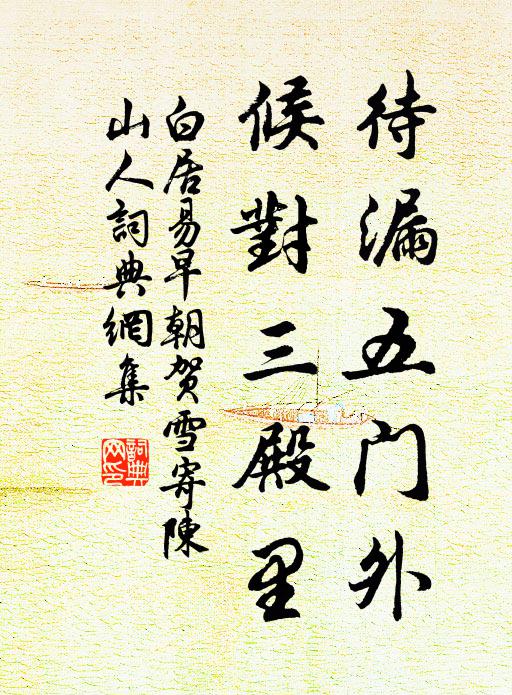 待漏五门外
候對三殿里
白居易早朝贺雪寄陳
山人詞典網集
詞典
网印